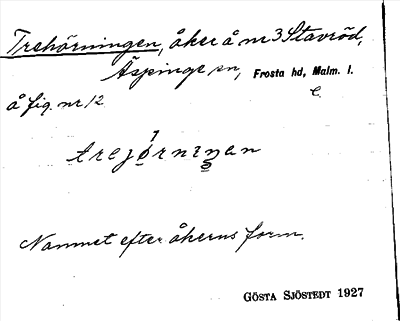 Trehörningen, åker å nr 3 Stavröd,
Äspinge sn, Frosta hd, Malm. l.
å fig. nr 12
Namnet efter åkerns form.
GÖSTA SJÖSTEDT 1927